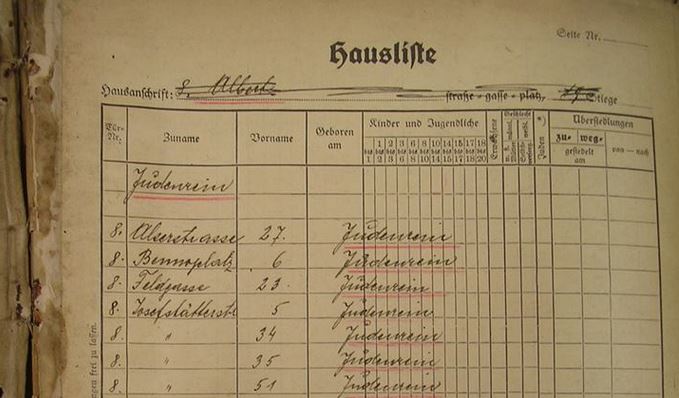 Seite Nr.
Hausliste
Hausanschrift: 8. Albert straße - gasse - platz, Stiege
Tür-Nr. Zuname Vorname Geboren am Kinder und Jugendliche Erwachsene Geschlecht männl. weibl. Juden Übersiedlungen
zu- weg- gesiedelt am von — nach
1 2 3 6 8 10 14 15 17 18
bis bis bis bis bis bis bis bis bis bis bis
1 2 3 6 8 10 14 15 17 18 20
Judenrein
8. Alserstrasse 27. Judenrein
8. Bennoplatz 6 Judenrein
8. Feldgasse 23. Judenrein
8. Josefstätterstr 5 Judenrein
8. " 34 Judenrein
8. " 35 Judenrein
8. " 51 Judenrein
ngen frei zu lassen.